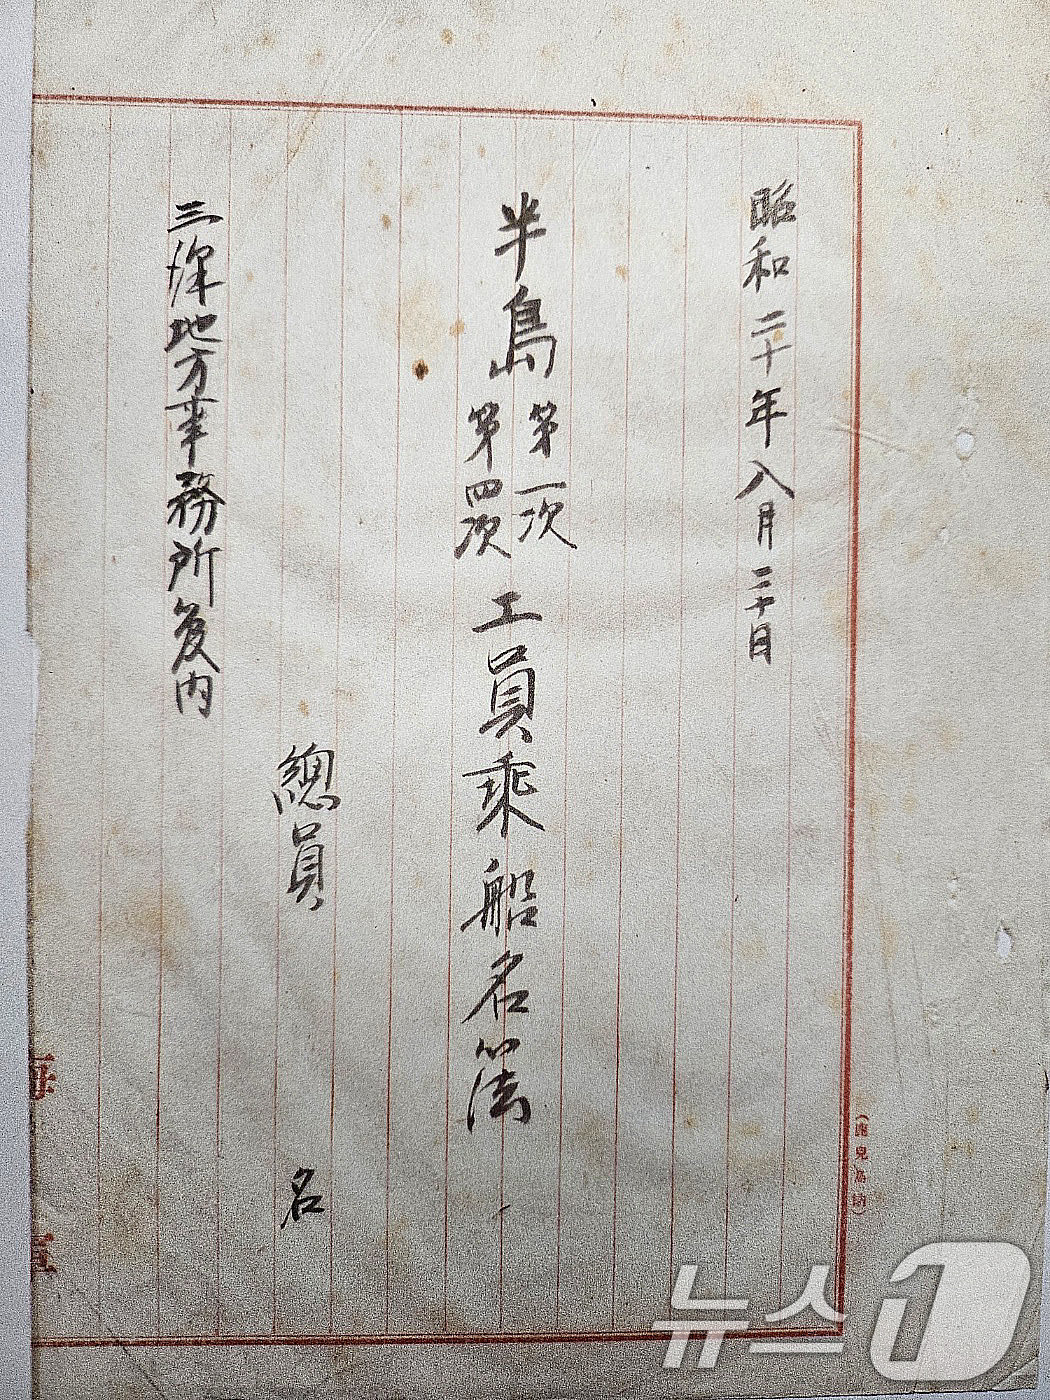 昭和二十年八月三十日
半島 第一次 第四次 工員乗船名簿
總員 名
三澤地方事務所内
海軍
(鹿兒島納)
뉴스1